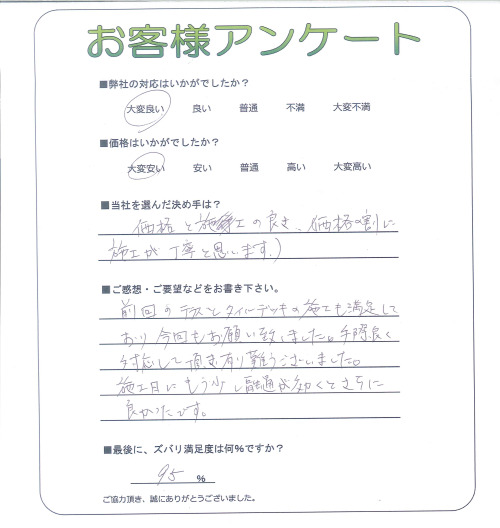 お客様アンケート
■弊社の対応はいかがでしたか？
大変良い 良い 普通 不満 大変不満
■価格はいかがでしたか？
大変安い 安い 普通 高い 大変高い
■当社を選んだ決め手は？
価格と施工の良さ、（価格の割に
施工が丁寧と思います。）
■ご感想・ご要望などをお書き下さい。
前回のテラスとタイルデッキの施工も満足して
おり今回もお願い致しました。手際良く
対応して頂き有り難うございました。
施工日にもう少し融通が効くとさらに
良かったです。
■最後に、ズバリ満足度は何%ですか？
95 %
ご協力頂き、誠にありがとうございました。